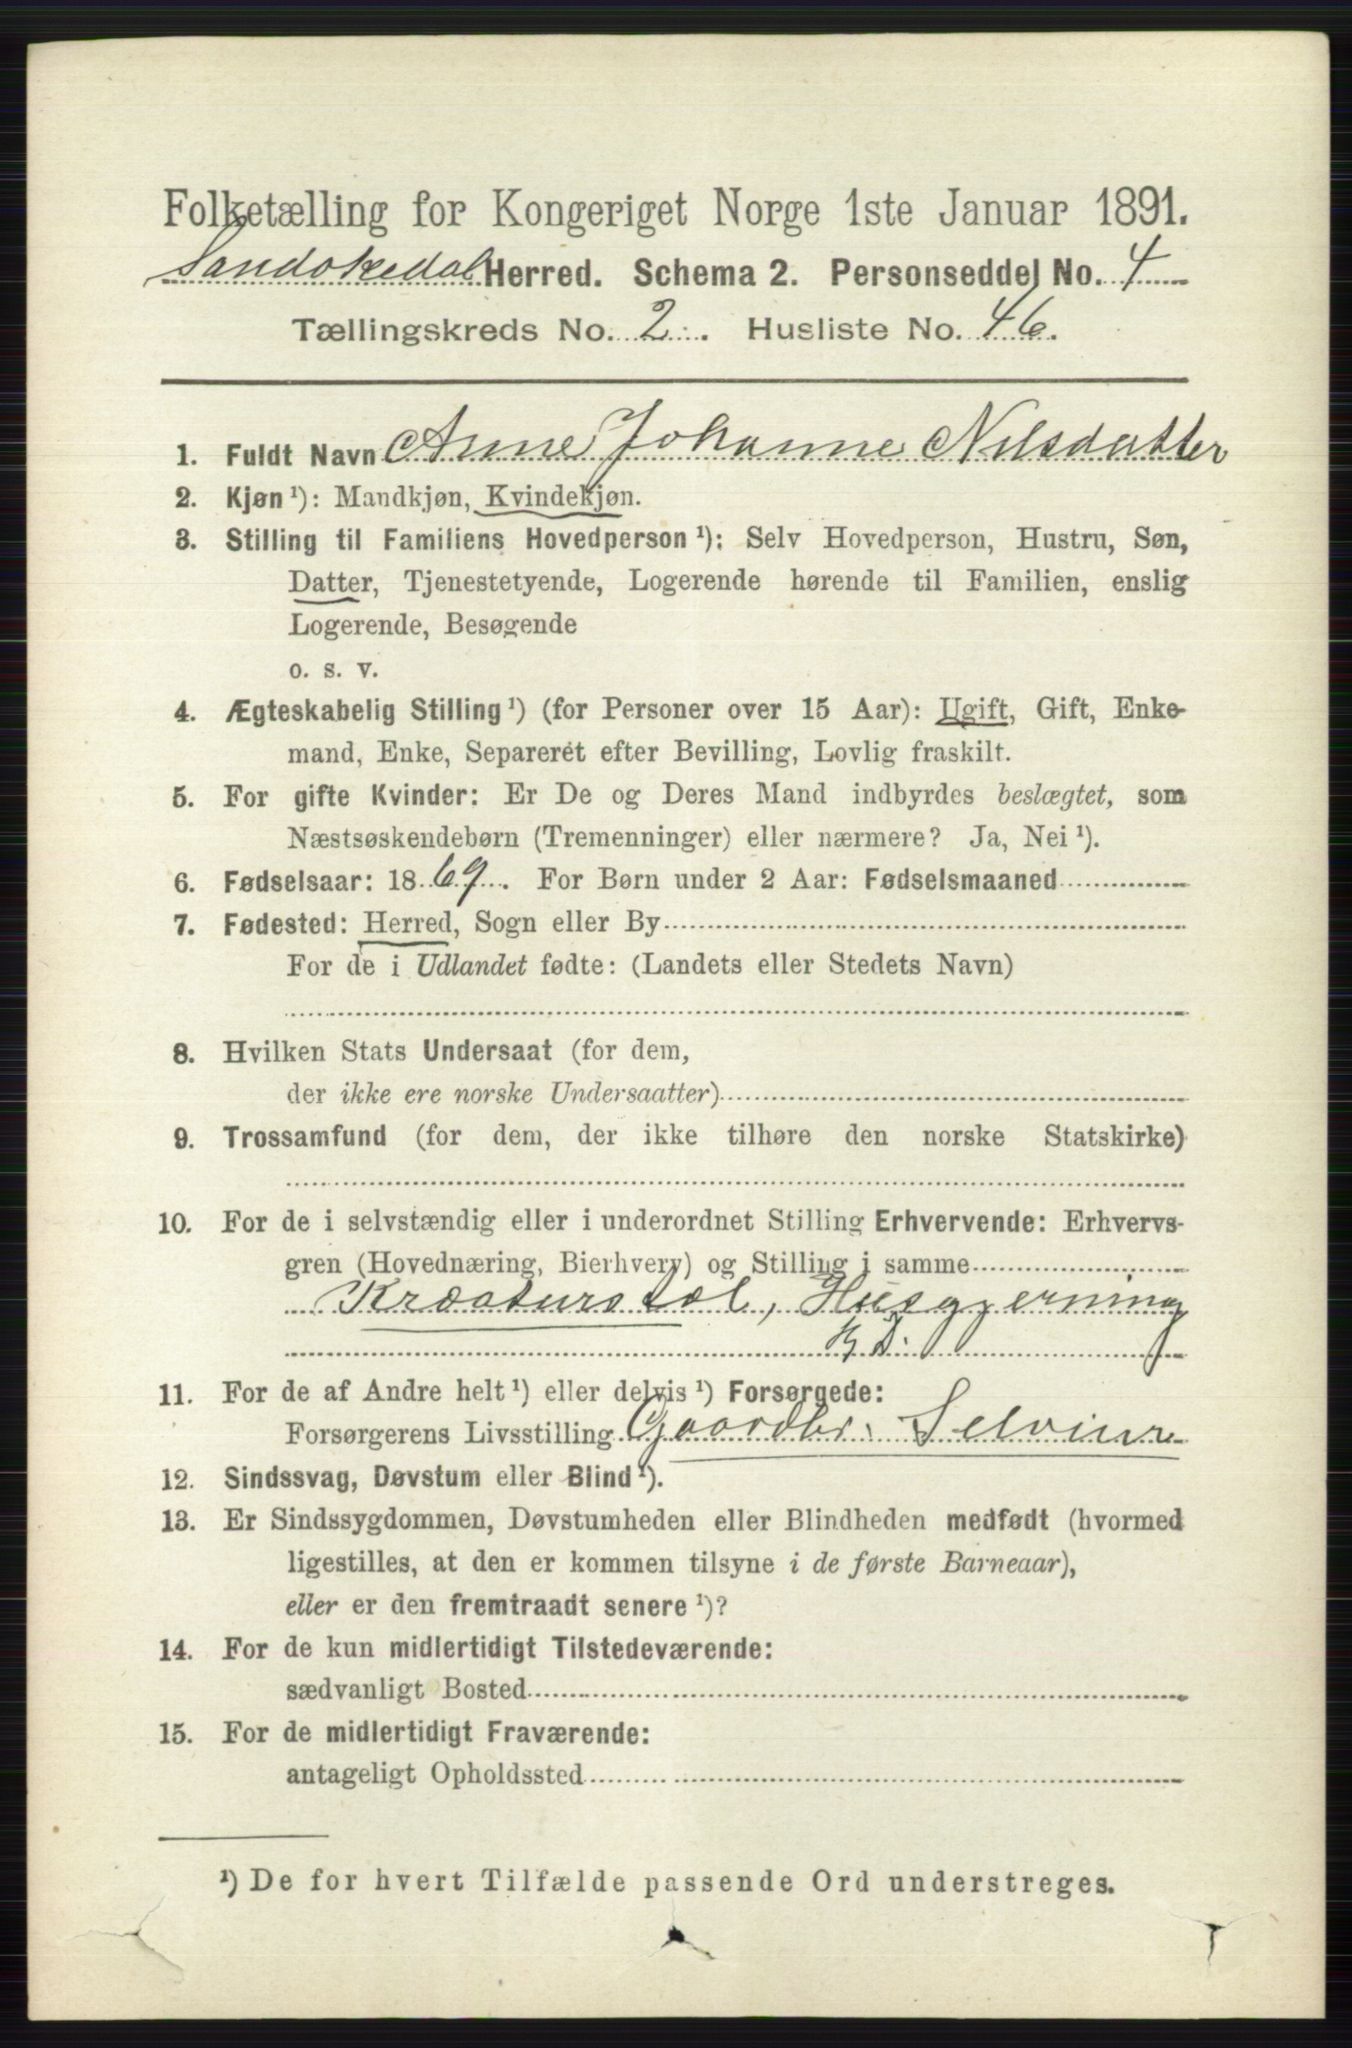 Folketælling for Kongeriget Norge 1ste Januar 1891.
Sandøkedal Herred. Schema 2. Personseddel No. 4
Tællingskreds No. 2. Husliste No. 46.
1. Fuldt Navn Anne Johanne Nilsdatter
2. Kjøn ¹): Mandkjøn, Kvindekjøn.
3. Stilling til Familiens Hovedperson ¹): Selv Hovedperson, Hustru, Søn,
Datter, Tjenestetyende, Logerende hørende til Familien, enslig
Logerende, Besøgende
o. s. v.
4. Ægteskabelig Stilling ¹) (for Personer over 15 Aar): Ugift, Gift, Enke-
mand, Enke, Separeret efter Bevilling, Lovlig fraskilt.
5. For gifte Kvinder: Er De og Deres Mand indbyrdes beslægtet, som
Næstsøskendebørn (Tremenninger) eller nærmere? Ja, Nei ¹).
6. Fødselsaar: 1869. For Børn under 2 Aar: Fødselsmaaned
7. Fødested: Herred, Sogn eller By
For de i Udlandet fødte: (Landets eller Stedets Navn)
8. Hvilken Stats Undersaat (for dem,
der ikke ere norske Undersaatter)
9. Trossamfund (for dem, der ikke tilhøre den norske Statskirke)
10. For de i selvstændig eller i underordnet Stilling Erhvervende: Erhvervs-
gren (Hovednæring, Bierhverv) og Stilling i samme
Kræaturstæl, Husgjerning
11. For de af Andre helt ¹) eller delvis ¹) Forsørgede:
Forsørgerens Livsstilling Gaardbr. Selveier
12. Sindssvag, Døvstum eller Blind ¹).
13. Er Sindssygdommen, Døvstumheden eller Blindheden medfødt (hvormed
ligestilles, at den er kommen tilsyne i de første Barneaar),
eller er den fremtraadt senere ¹)?
14. For de kun midlertidigt Tilstedeværende:
sædvanligt Bosted
15. For de midlertidigt Fraværende:
antageligt Opholdssted
¹) De for hvert Tilfælde passende Ord understreges.